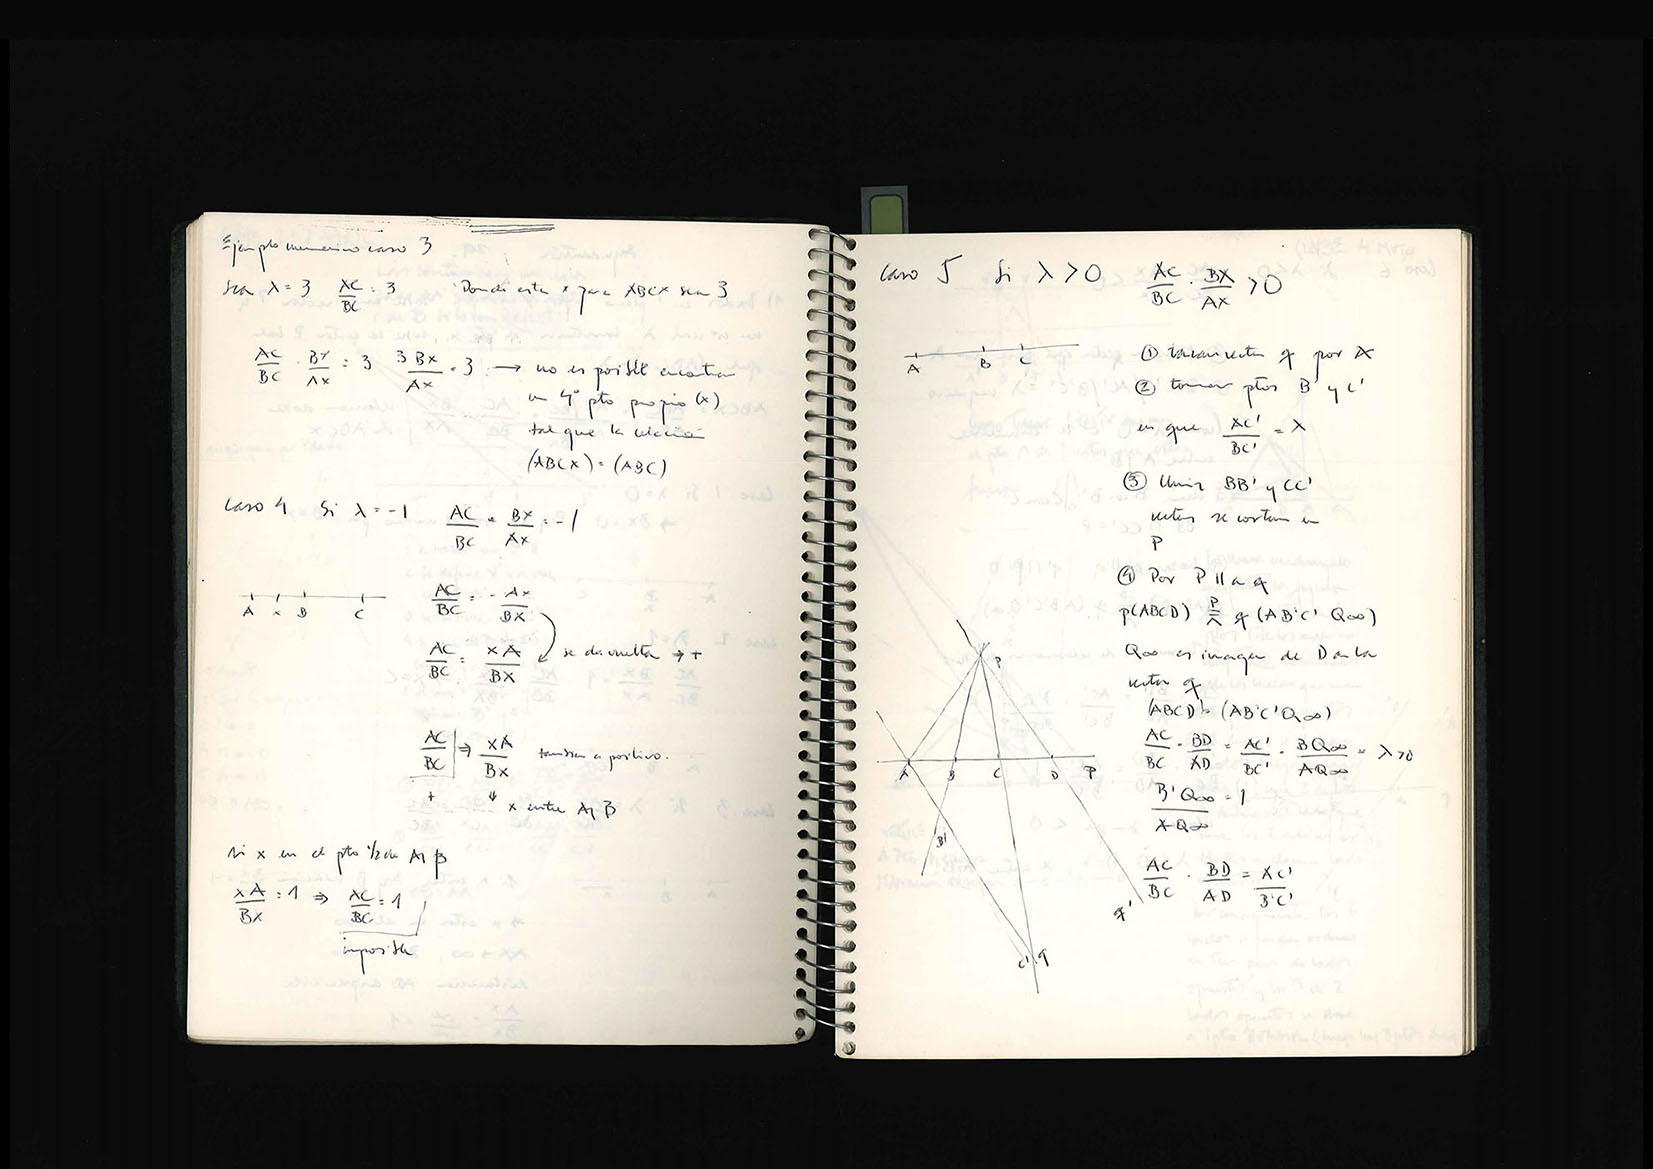 Ejemplo numerico caso 3
sea λ = 3 AC/BC = 3 Donde esta x para ABCX sea 3
AC/BC · BX/AX = 3 3BX/AX = 3 → no es posible encontrar
un 4º pto propio (x)
tal que la relación
(ABCX) = (ABC)
Caso 4 Si λ = -1 AC/BC · BX/AX = -1
A x B C
AC/BC = -AX/BX
AC/BC = XA/BX se da vuelta → +
AC/BC ⇒ XA/BX positivo.
+ ⇓ x entre A y B
Si x en el pto 1/2 de A y B
XA/BX = 1 ⇒ AC/BC = 1
imposible
Caso 5 Si λ > 0 AC/BC · BX/AX > 0
A B C
① q por A
② tomar ptos B' y C'
en que AC'/BC' = λ
③ Unir BB' y CC'
rectas se cortan en
P
④ Por P // a q
p(ABCD) P/⊼ q (AB'C' Q∞)
Q∞ es imagen de D en la
recta q
(ABCD) = (AB'C'Q∞)
AC/BC · BD/AD = AC'/BC' · BQ∞/AQ∞ = λ > 0
B'Q∞/AQ∞ = 1
AC/BC · BD/AD = AC'/B'C'
P
A B C D P
B'
q'
C' q